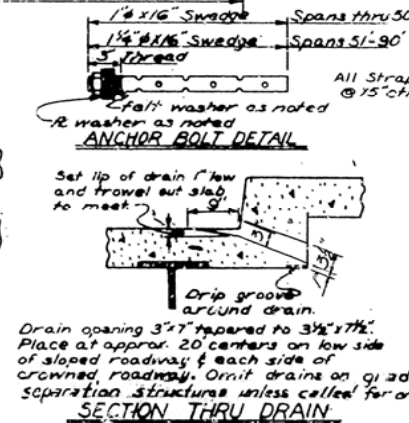 1"φ x 16" Swedge Spans thru 50
1¼"φ x 16" Swedge Spans 51'-90'
3" Thread
All Strap
@ 75°
felt washer as noted
washer as noted
ANCHOR BOLT DETAIL
Set lip of drain 1" low
and trowel out slab
to meet
9"
3"
3½"
Drip groove
around drain.
Drain opening 3"x7" tapered to 3½"x7½".
Place at approx. 20' centers on low side
of sloped roadway & each side of
crowned roadway. Omit drains on grad
separation structures unless called for on
SECTION THRU DRAIN